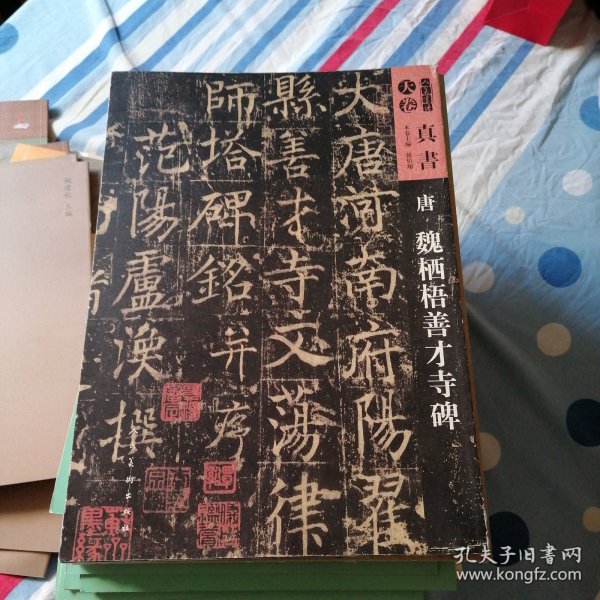 大唐河南府陽翟
縣善才寺文蕩律
師塔碑銘并序
范陽盧渙撰
天卷
真書
唐 魏栖梧善才寺碑
人民美术出版社
孔夫子旧书网
www.kongfz.com